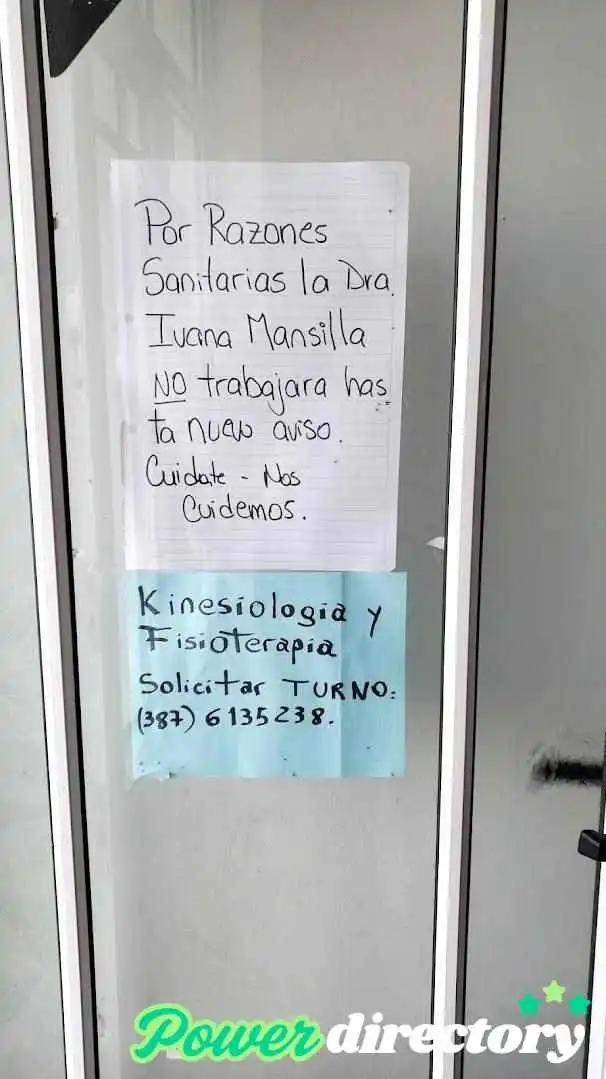 Por Razones
Sanitarias la Dra.
Ivana Mansilla
NO trabajara has
ta nuevo aviso.
Cuidate - Nos
Cuidemos.
Kinesiologia y
Fisioterapia
Solicitar TURNO:
(387) 6135238.
Power directory